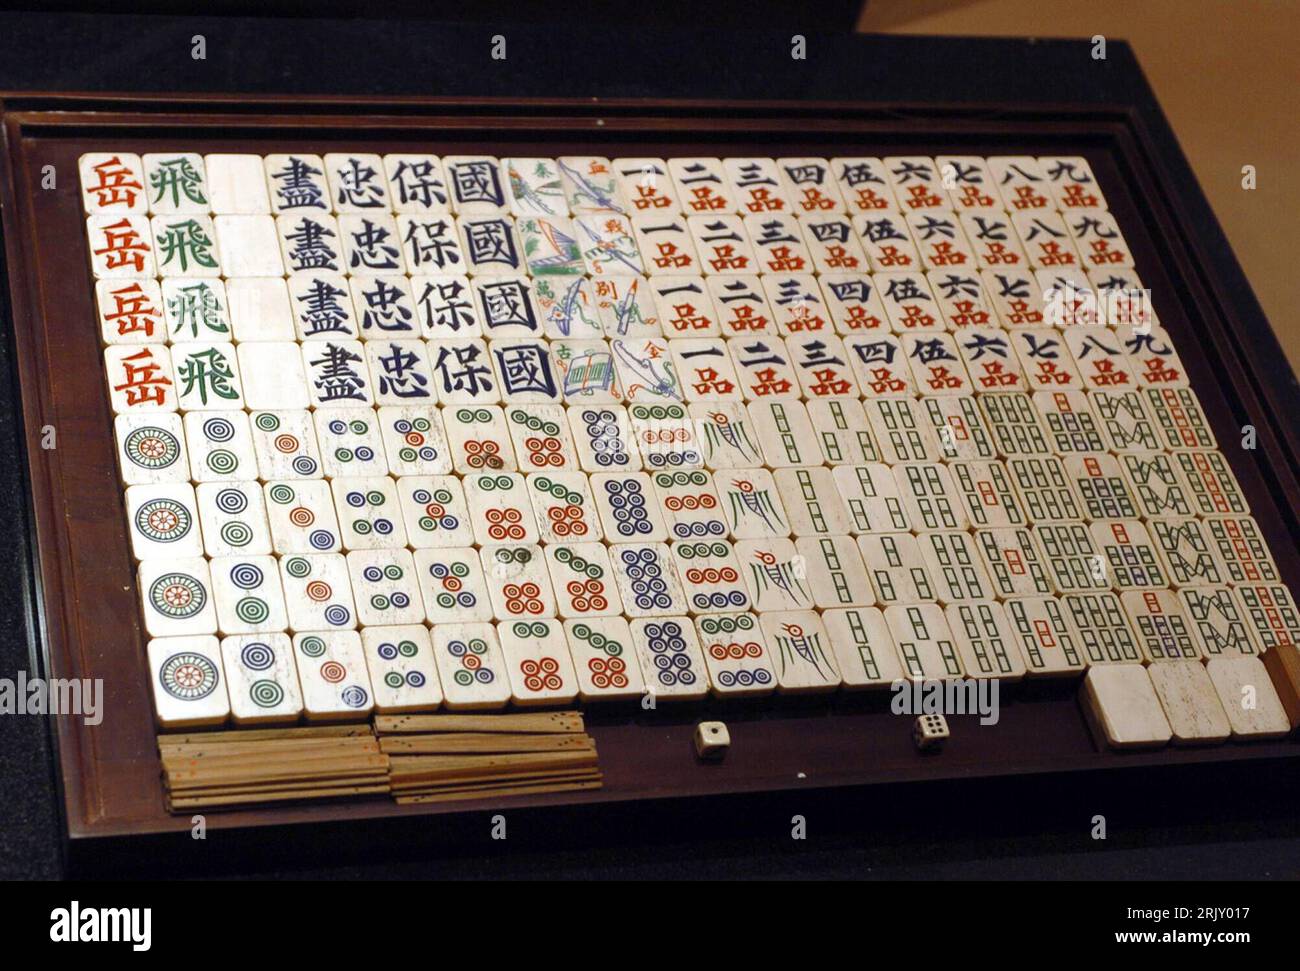 岳 飛 盡 忠 保 國 秦 血 一品 二品 三品 四品 伍品 六品 七品 八品 九品
岳 飛 盡 忠 保 國 流 戰 一品 二品 三品 四品 伍品 六品 七品 八品 九品
岳 飛 盡 忠 保 國 萬 別 一品 二品 三品 四品 伍品 六品 七品 八品 九品
岳 飛 盡 忠 保 國 古 金 一品 二品 三品 四品 伍品 六品 七品 八品 九品
alamy
Image ID: 2RJXY017
www.alamy.com